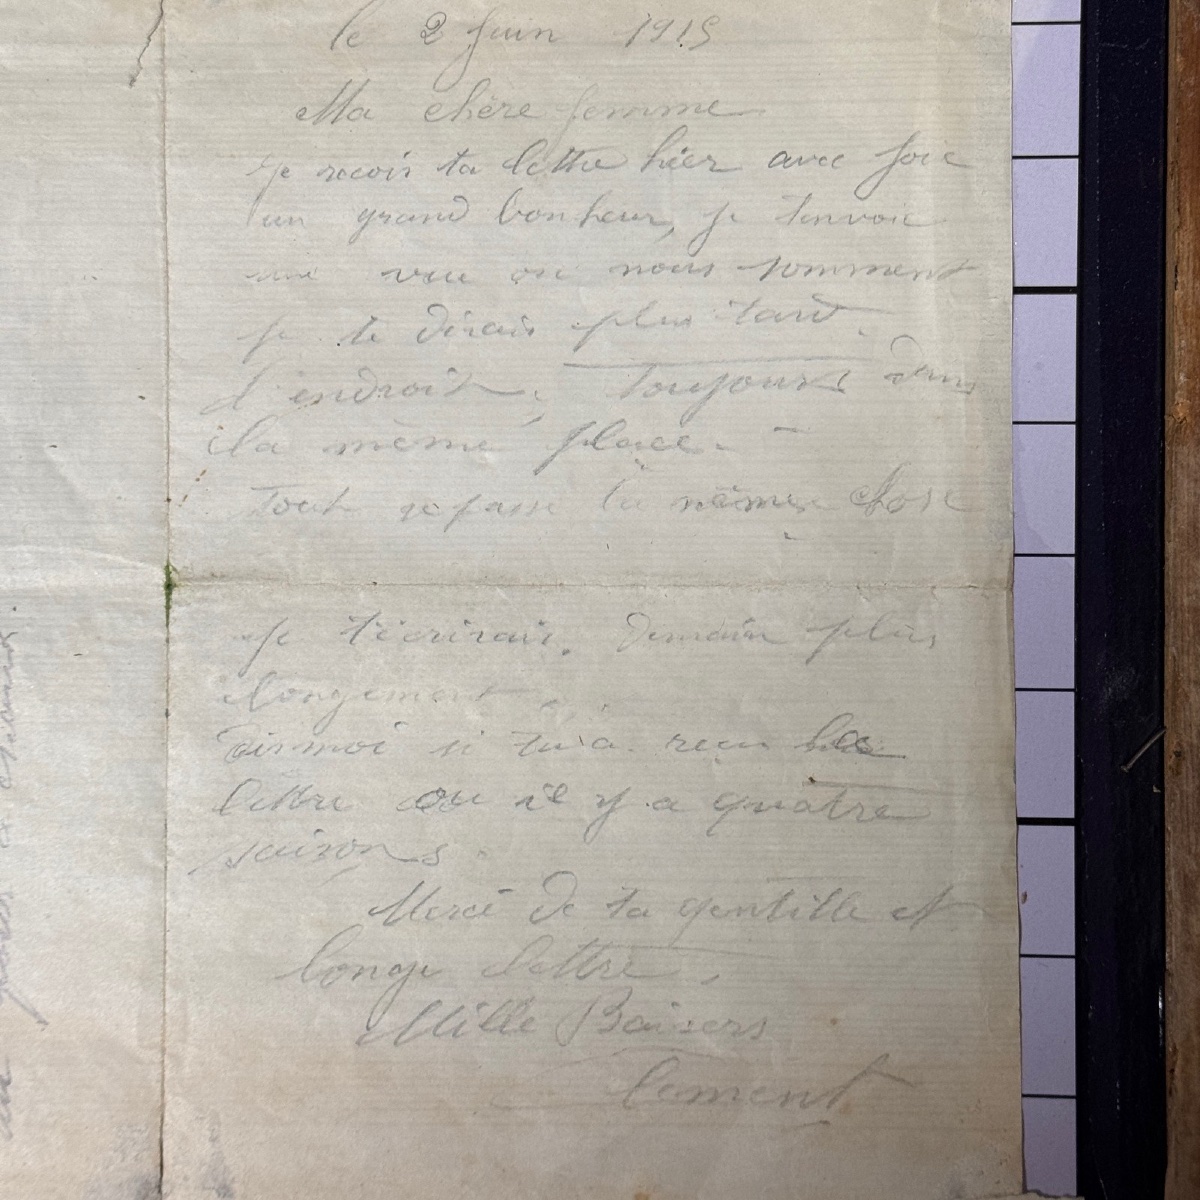 le 2 Juin 1915
Ma chère femme
Je recois ta lettre hier avec joie
un grand bonheur, je tenvoie
une vue ou nous somment
je te dirais plus tard.
l'endroit. Toujours dans
la même place. -
Tout se passe la même chose
Je t'écrirais. Demain plus
longement.
Dis moi si tu a recu la
lettre ou il y a quatre
saisons.
Merci de ta gentille et
longe lettre,
Mille Baisers
Clement